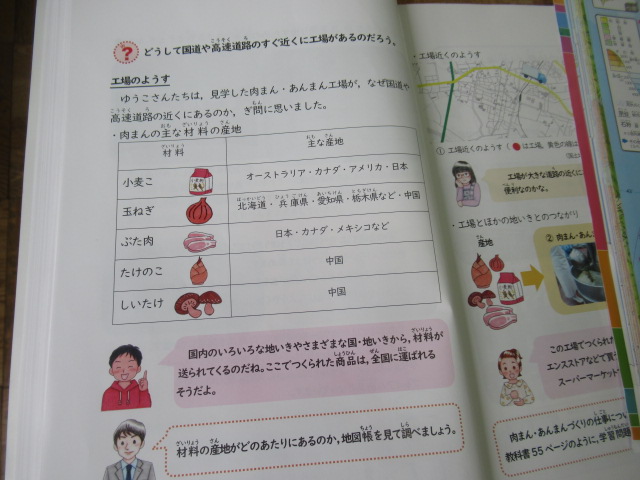 どうして国道や高速道路のすぐ近くに工場があるのだろう。
工場のようす
ゆうこさんたちは，見学した肉まん・あんまん工場が，なぜ国道や
高速道路の近くにあるのか，ぎ問に思いました。
・肉まんの主な材料の産地
材料 主な産地
小麦こ オーストラリア・カナダ・アメリカ・日本
玉ねぎ 北海道・兵庫県・愛知県・栃木県など・中国
ぶた肉 日本・カナダ・メキシコなど
たけのこ 中国
しいたけ 中国
国内のいろいろな地いきやさまざまな国・地いきから，材料が
送られてくるのだね。ここでつくられた商品は，全国に運ばれる
そうだよ。
材料の産地がどのあたりにあるのか，地図帳を見て調べましょう。
・工場近くのようす
① 工場近くのようす（●は工場，黄色の線は
工場が大きな道路の近くに
便利なのかな。
・工場とほかの地いきとのつながり
産地
② 肉まん・あん
この工場でつくられた
エンスストアなどで買
スーパーマーケット
肉まん・あんまんづくりの仕事につい
教科書55ページのように，学習問題